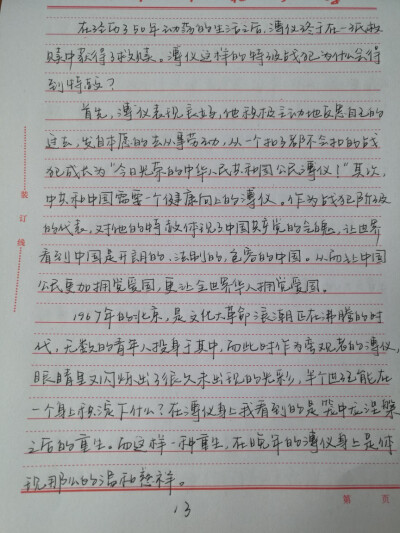 在经历了50年动荡的生活之后，溥仪终于在一纸赦
赎中获得了救赎。溥仪这样的特级战犯为什么会得
到特赦？
首先，溥仪表现良好，他积极主动地反思自己的
过去，发自本愿的去从事劳动，从一个扣子都不会扣的战
犯成长为“今日光荣的中华人民共和国公民溥仪！”其次，
中共和中国需要一个健康向上的溥仪。作为战犯阶级
的代表，对他的特赦体现了中国共产党的气魄，让世界
看到中国是开朗的、法制的，包容的中国。从而让中国
公民更加拥党爱国，更让全世界华人拥党爱国。
1967年的北京，是文化大革命浪潮正在沸腾的时
代，无数的青年人投身于其中，而此时作为旁观者的溥仪，
眼睛里又闪烁出了很久未出现的光彩，半个世纪能在
一个身上积淀下什么？在溥仪身上我看到的是哭中龙涅槃
之后的重生。而这样一种重生，在晚年的溥仪身上是体
现那么的温和慈祥。
装订线
第 页
13